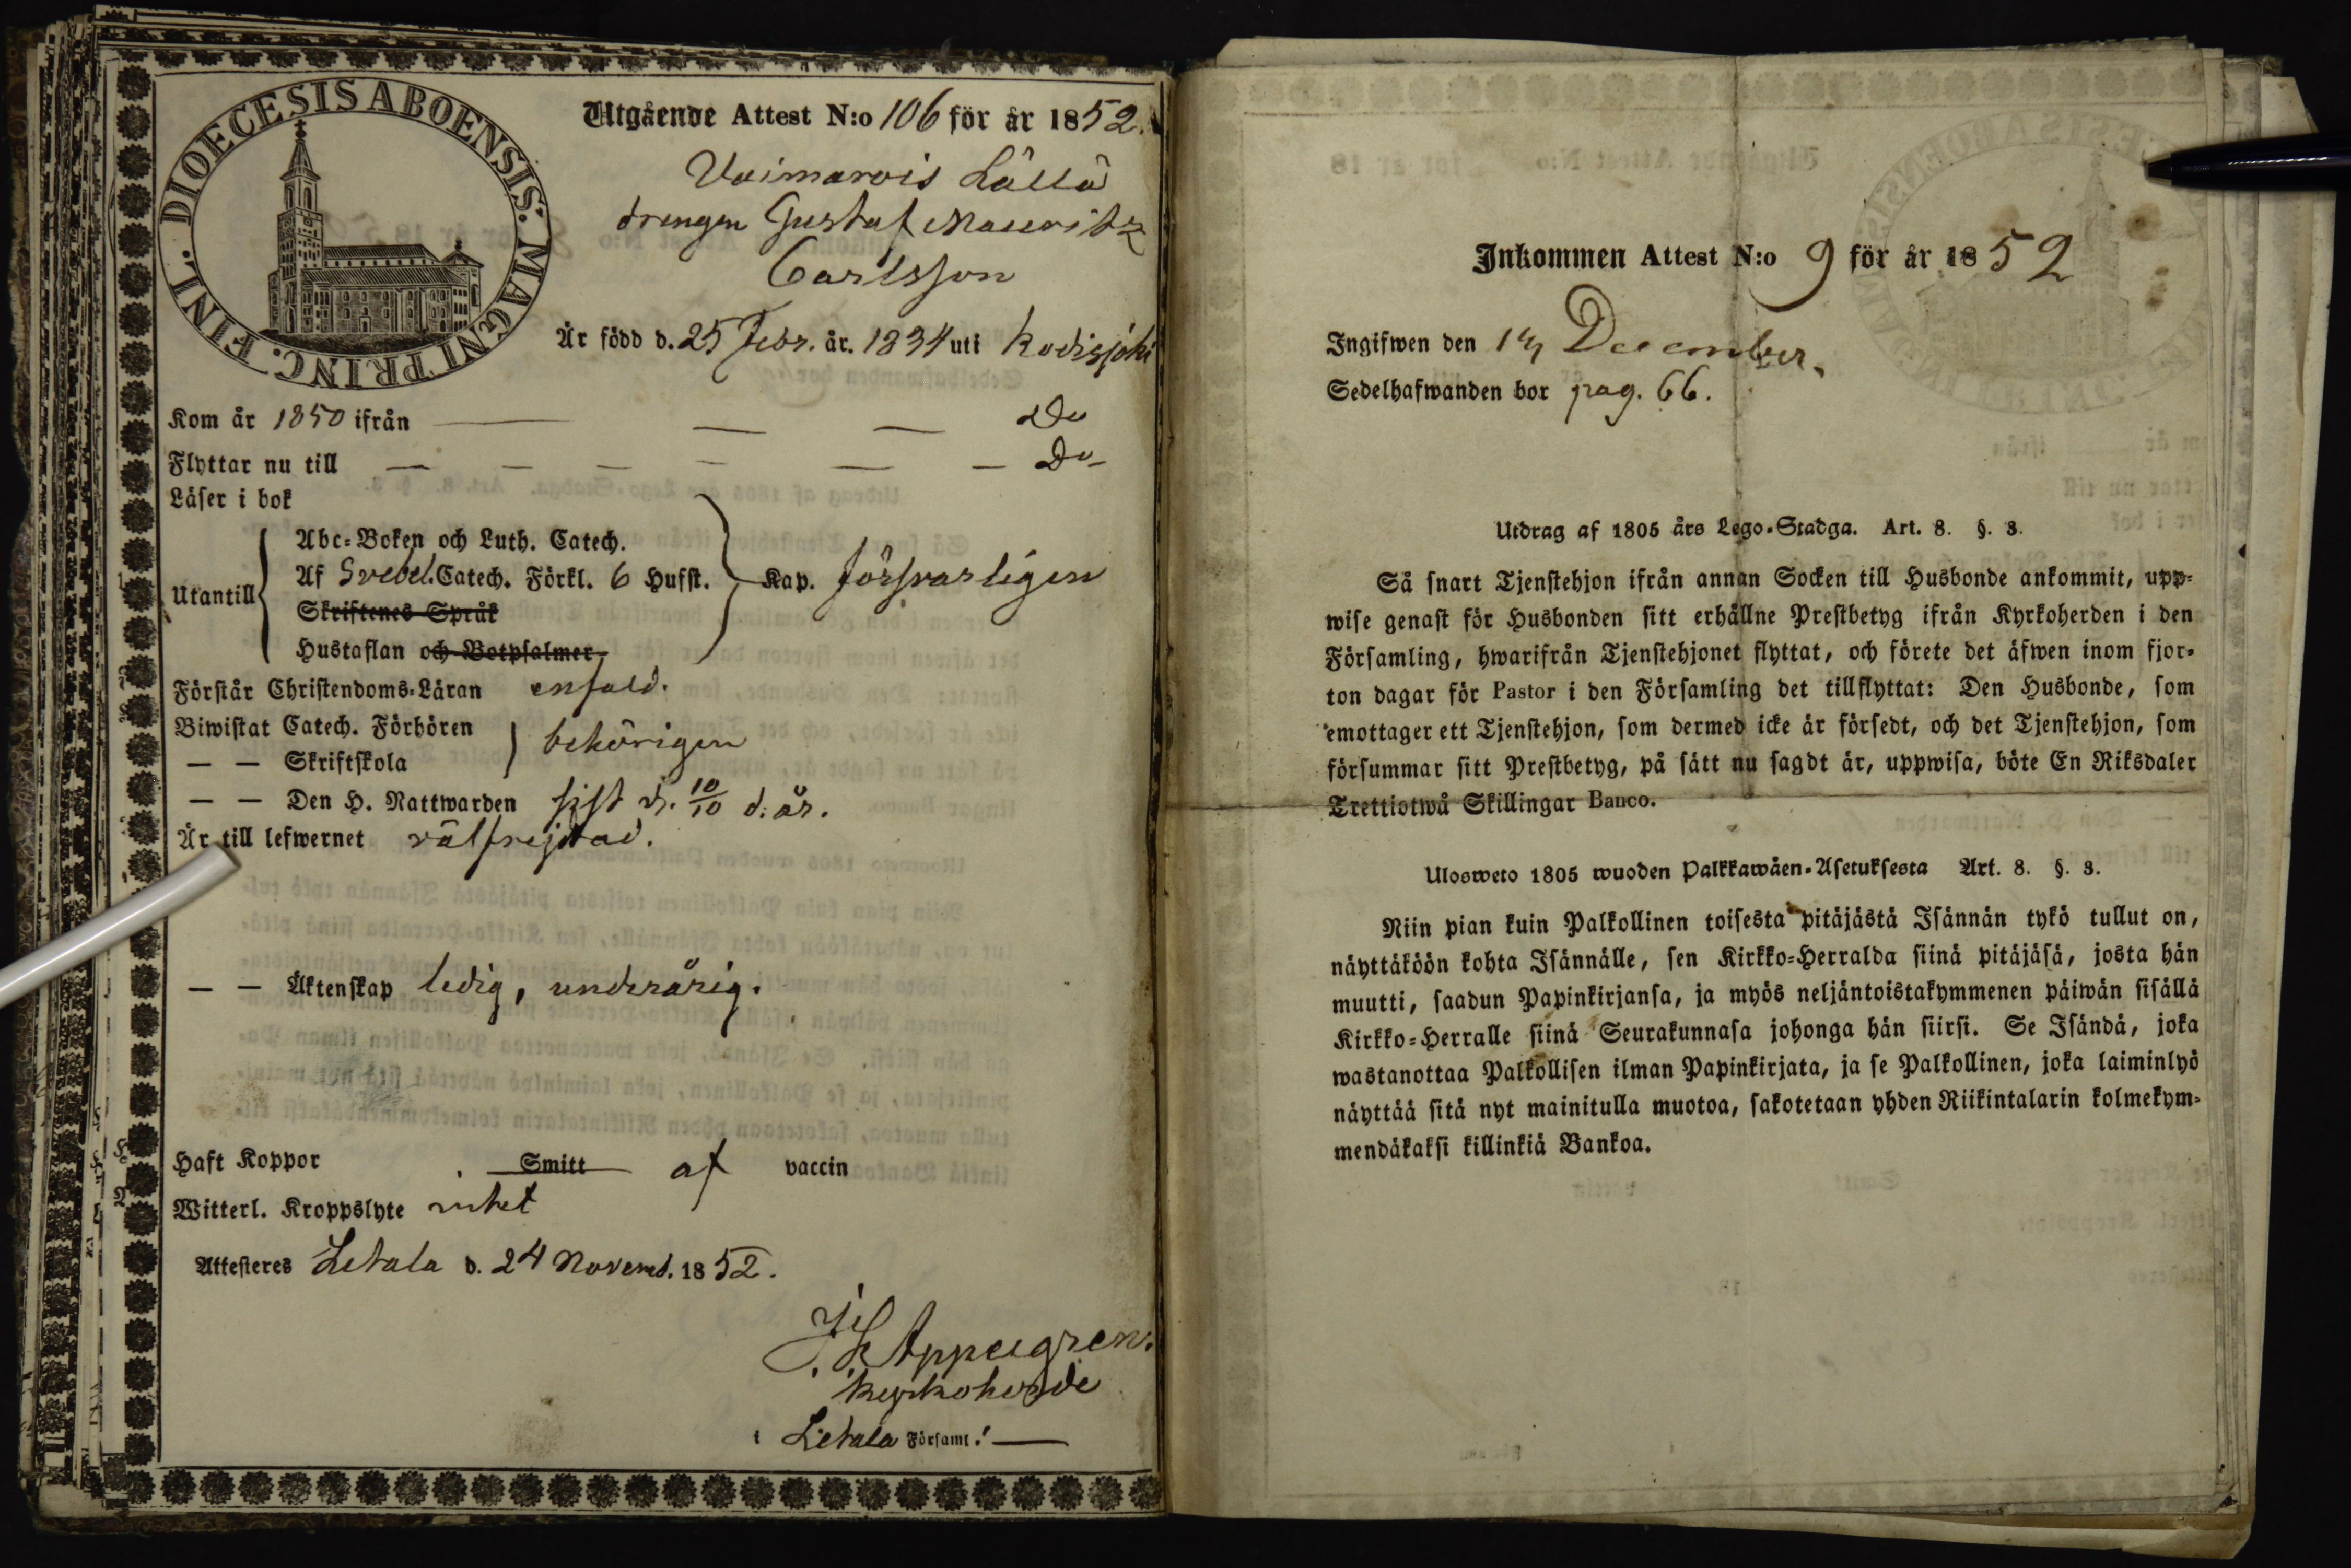 DIOECESIS ABOENSIS. MAGNI PRINC. FINL.
Utgående Attest N:o 106 för år 1852.
Vaimarois Lällä
drengen Gustaf Mauritz
Carlsson
Är född d. 25 Febr. år. 1834 uti Kodisjoki
Kom år 1850 ifrån — — — Do
Flyttar nu till — — — — — — Do
Läser i bok
Utantill
Abc-Boken och Luth. Catech.
Af Svebel. Catech. Förkl. 6 Hufst. Kap. försvarligen
Skriftenes Språk
Hustaflan och Botpsalmer
Förstår Christendoms-Läran enfald.
Biwistat Catech. Förhören
behörigen
— — Skriftskola
— — Den H. Nattwarden sist d. 10/10 d: år.
Är till lefwernet välfrejdad.
— — Äktenskap ledig, underårig.
Haft Koppor Smitt af vaccin
Witterl. Kroppslyte intet
Attesteres Letala d. 24 Novemb. 1852.
Appelgren.
Kyrkoherde
i Letala Församl:
Inkommen Attest N:o 9 för år 1852
Ingifwen den December.
Sedelhafwanden bor pag. 66.
Utdrag af 1805 års Lego-Stadga. Art. 8. §. 3.
Så snart Tjenstehjon ifrån annan Socken till Husbonde ankommit, upp-
wise genast för Husbonden sitt erhållne Prestbetyg ifrån Kyrkoherden i den
Församling, hwarifrån Tjenstehjonet flyttat, och förete det äfwen inom fjor-
ton dagar för Pastor i den Församling det tillflyttat: Den Husbonde, som
emottager ett Tjenstehjon, som dermed icke är försedt, och det Tjenstehjon, som
försummar sitt Prestbetyg, på sätt nu sagdt är, uppwisa, böte En Riksdaler
Trettiotwå Skillingar Banco.
Ulosweto 1805 wuoden Palkkawäen-Asetuksesta Art. 8. §. 3.
Niin pian kuin Palkollinen toisesta pitäjästä Isännän tykö tullut on,
näyttäköön kohta Isännälle, sen Kirkko-Herralda siinä pitäjäsä, josta hän
muutti, saadun Papinkirjansa, ja myös neljäntoistakymmenen päiwän sisällä
Kirkko-Herralle siinä Seurakunnasa johonga hän siirsi. Se Isändä, joka
wastanottaa Palkollisen ilman Papinkirjata, ja se Palkollinen, joka laiminlyö
näyttää sitä nyt mainitulla muotoa, sakotetaan yhden Riikintalarin kolmekym-
mendäkaksi killinkiä Bankoa.